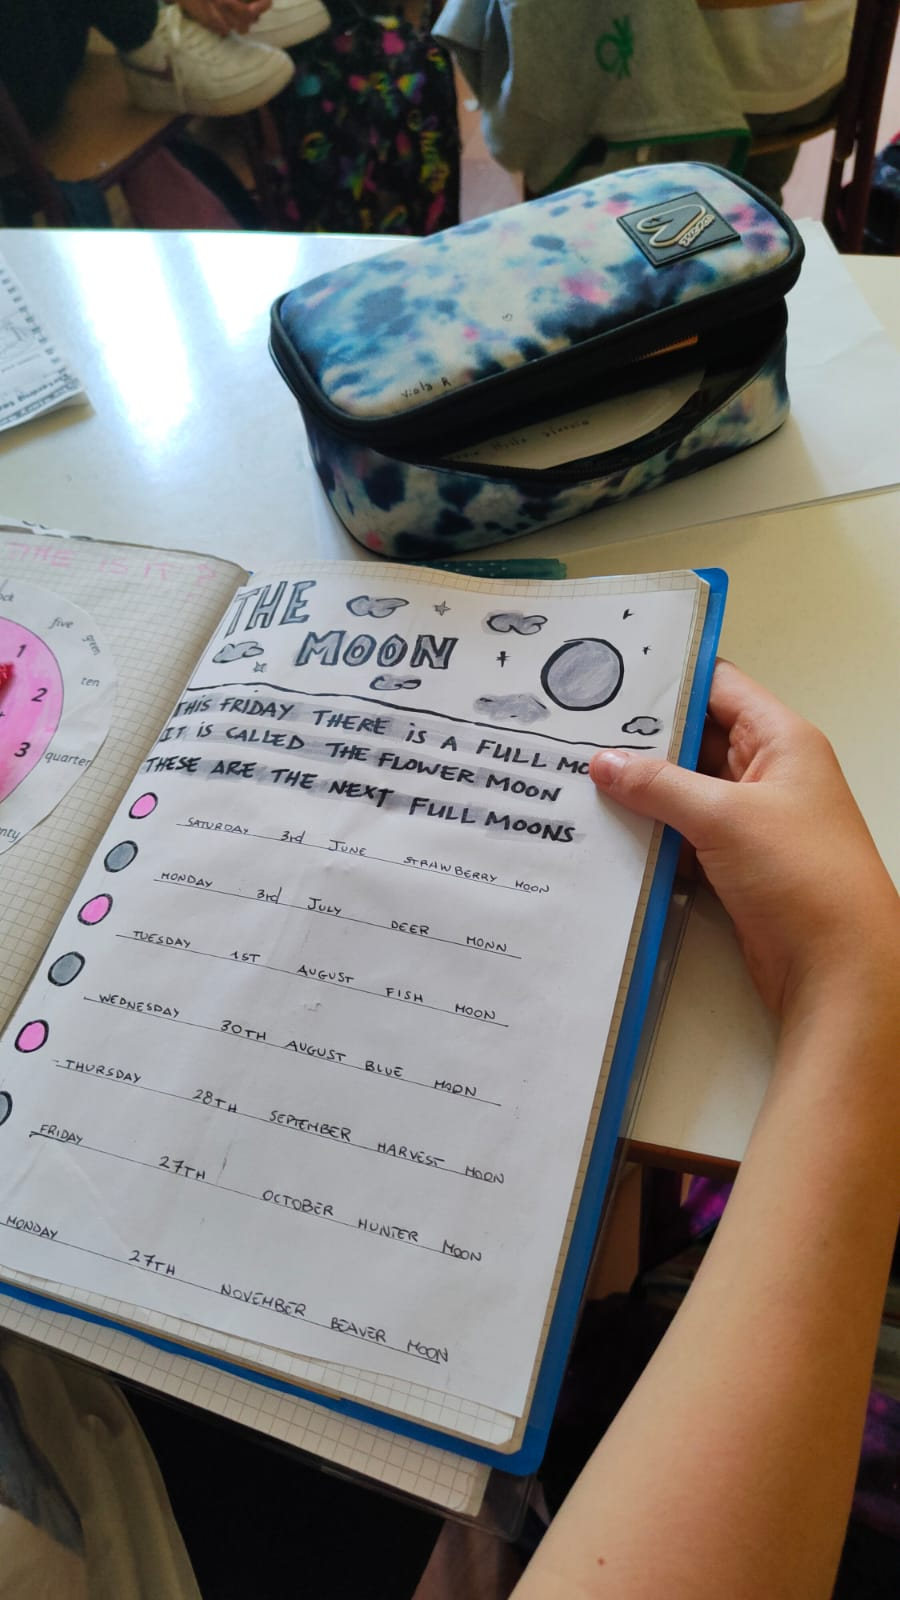 Viola R
THE IS IT?
five
ten
quarter
1
2
3
THE
MOON
THIS FRIDAY THERE IS A FULL MO
IT IS CALLED THE FLOWER MOON
THESE ARE THE NEXT FULL MOONS
SATURDAY 3rd JUNE STRAWBERRY MOON
MONDAY 3rd JULY DEER MONN
TUESDAY 1ST AUGUST FISH MOON
WEDNESDAY 30TH AUGUST BLUE MOON
THURSDAY 28TH SEPTEMBER HARVEST MOON
FRIDAY 27TH OCTOBER HUNTER MOON
MONDAY 27TH NOVEMBER BEAVER MOON